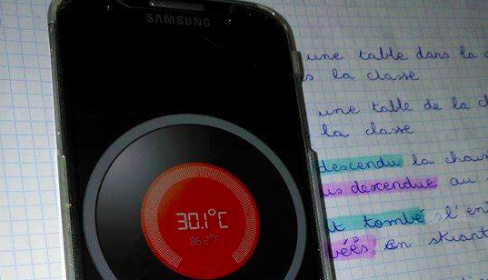 SAMSUNG
30.1°C
86.2°F
une table dans la
la classe
une table de la
la classe
descendu la
descendue au
tombé l'en
en skiant